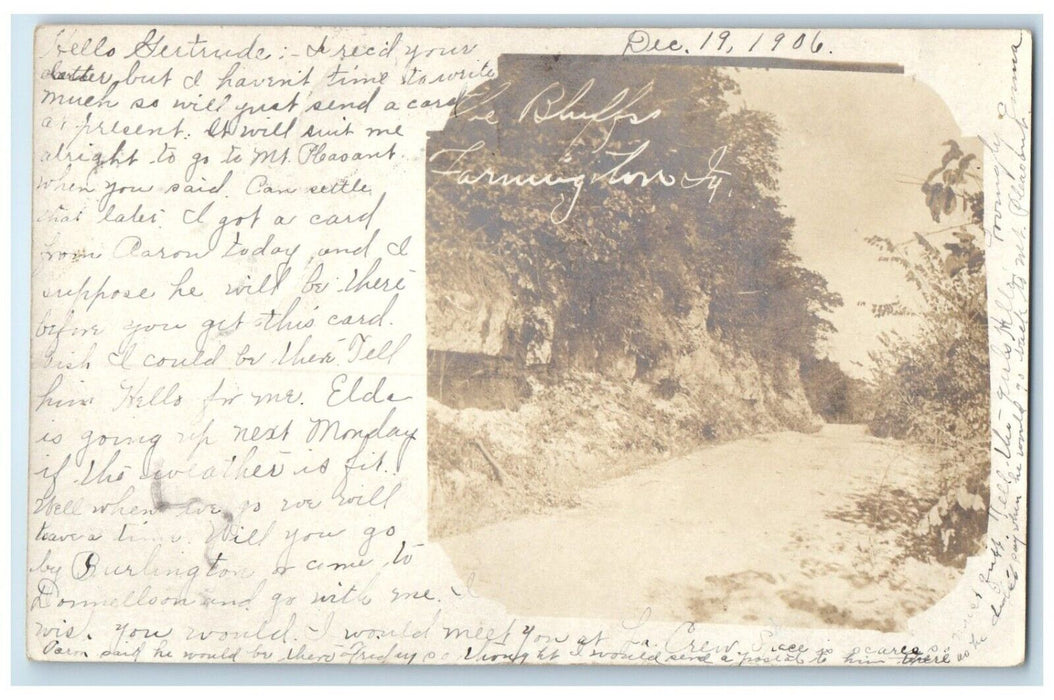 Dec. 19, 1906.
Hello Gertrude:- I rec'd your
letter, but I haven't time to write
much so will just send a card
at present. It will suit me
alright to go to Mt. Pleasant.
when you said. Can settle
that later. I got a card
from Aaron today, and I
suppose he will be there
before you get this card.
Wish I could be there Tell
him Hello for me. Elda
is going up next Monday
if the weather is fit.
Well when we go we will
have a time. Will you go
by Burlington or come to
Donnellson and go with me. I
wish you would. I would meet you at La Crew. Space is scarce so
Aaron said he would be there Friday so thought I would send a postal to him there
The Bluffs
Farmington Ia.
Tell the girls Hello Lovingly Emma
as he didn't say when he would go back to Mt. Pleasant